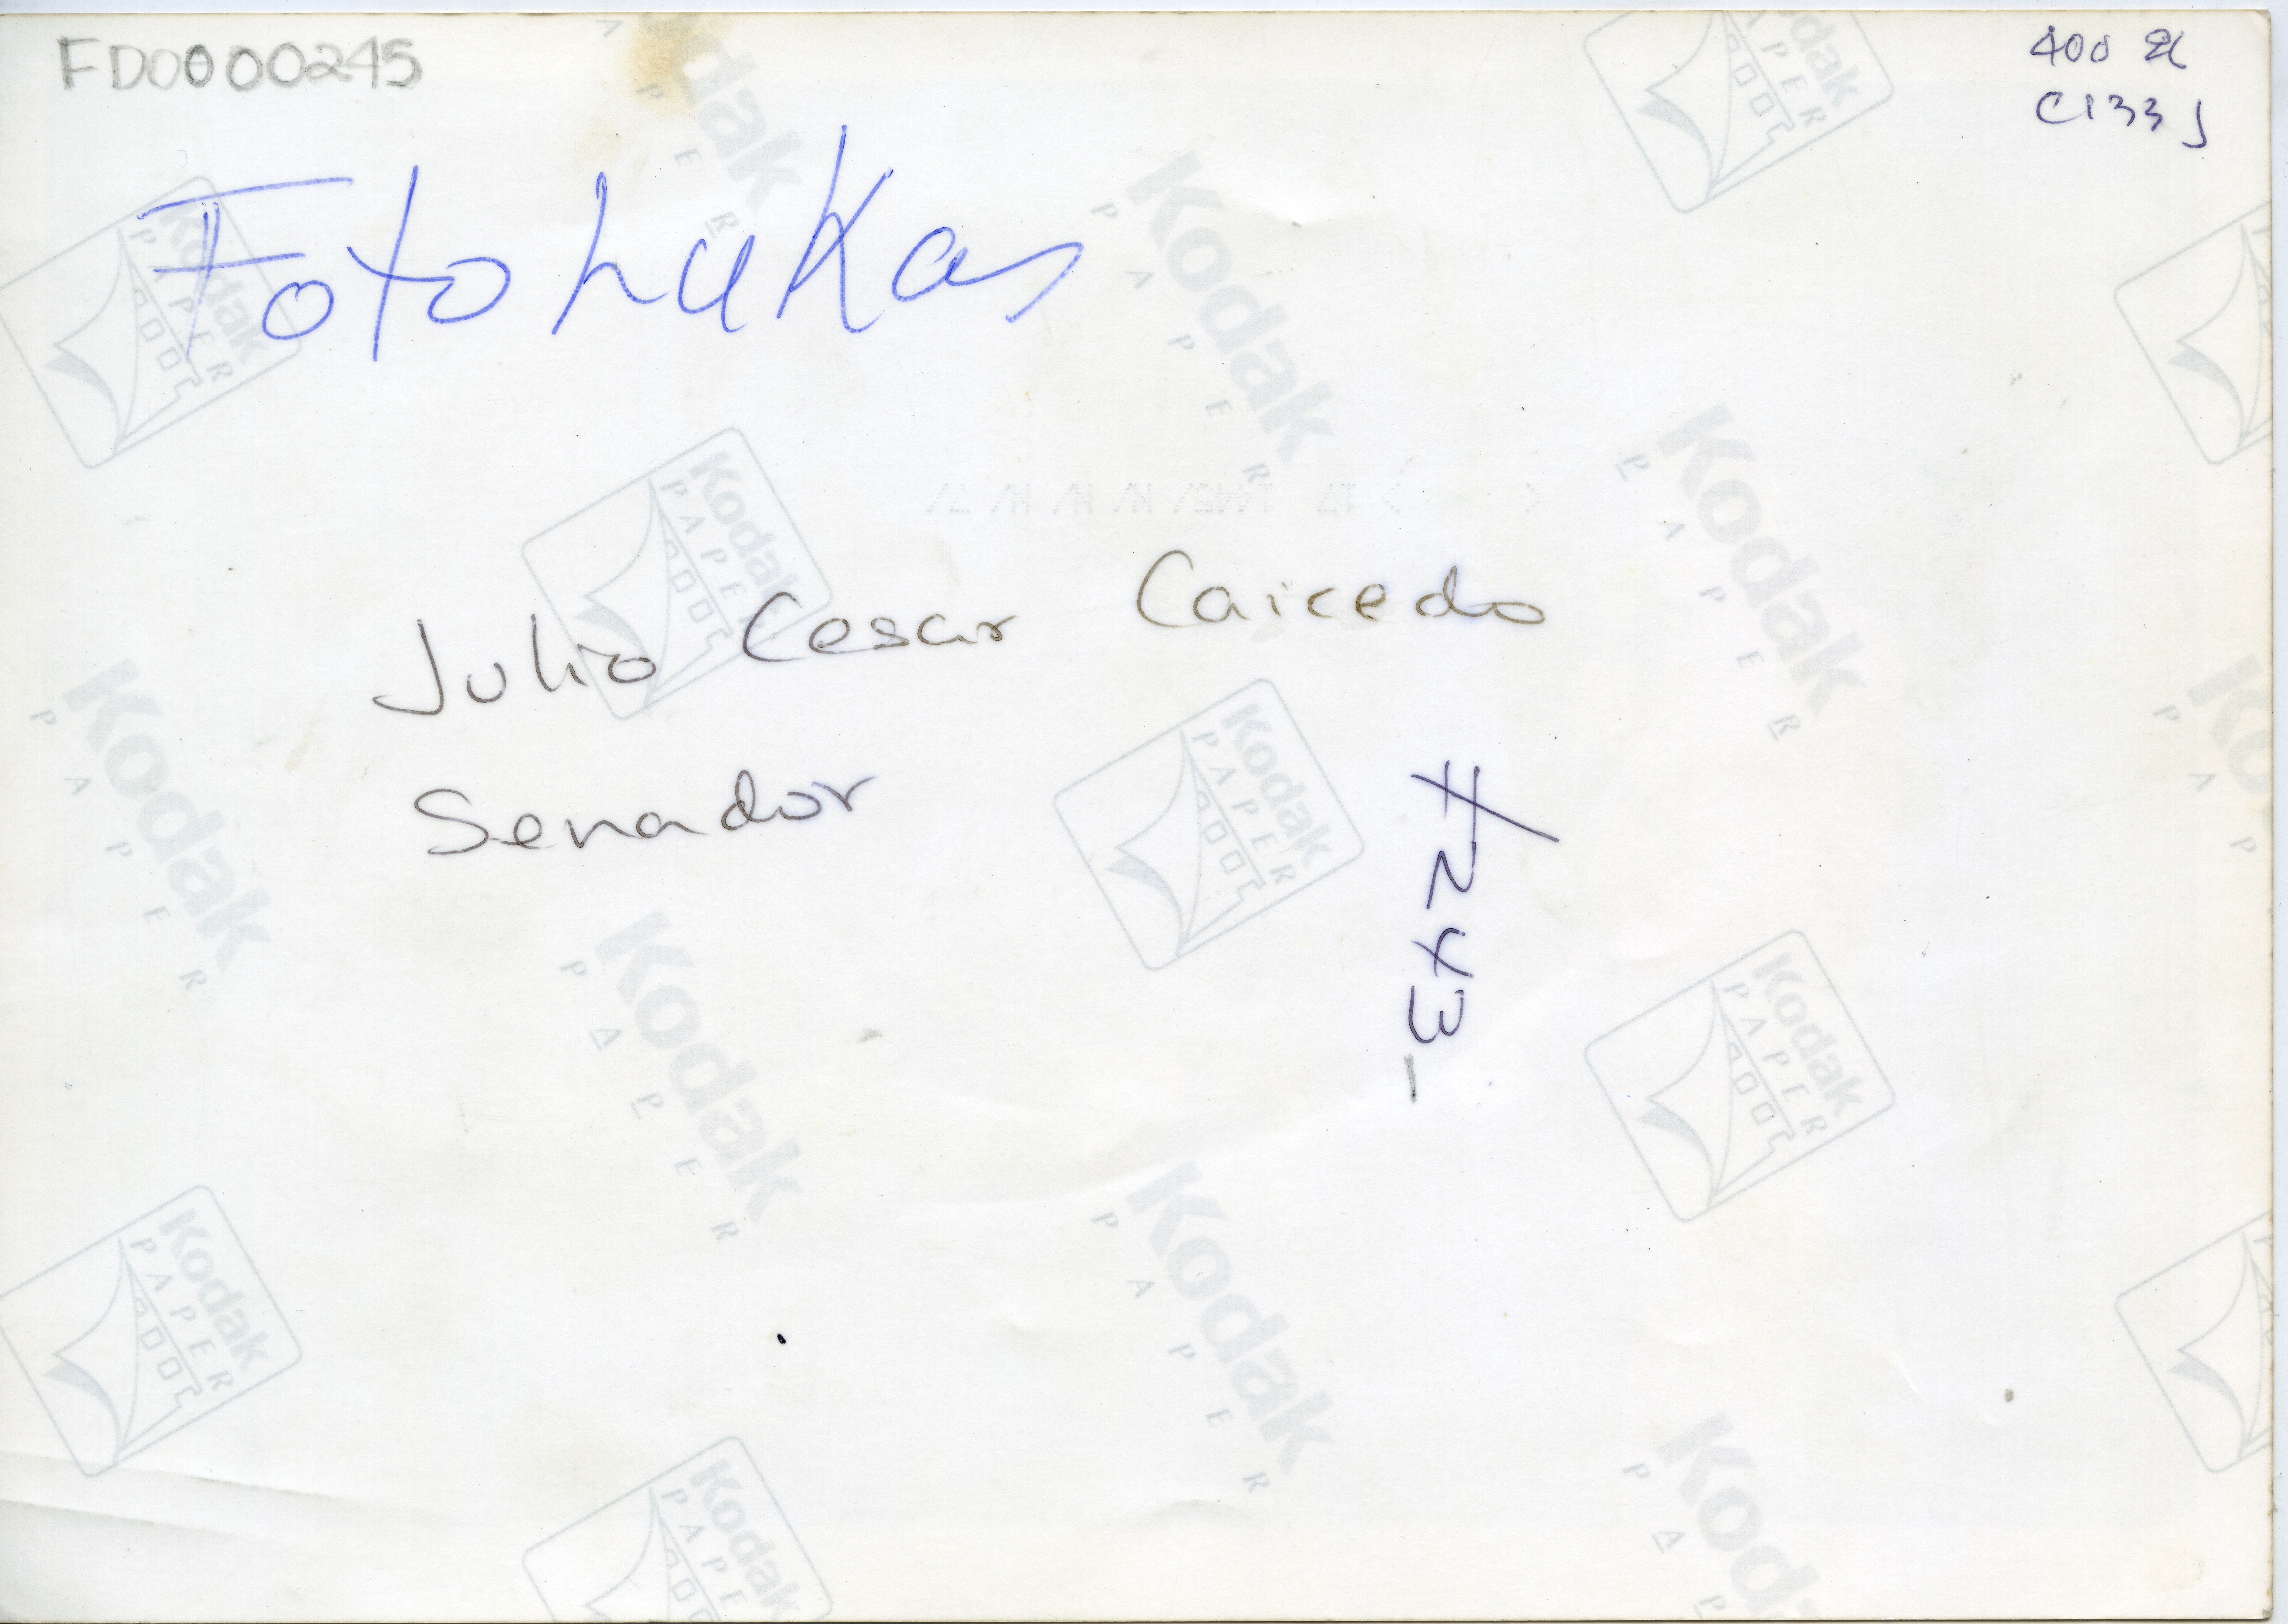 FD0000245
400
C133j
Foto Lukas
Julio Cesar Caicedo
Senador
#243-
Kodak
PAPER